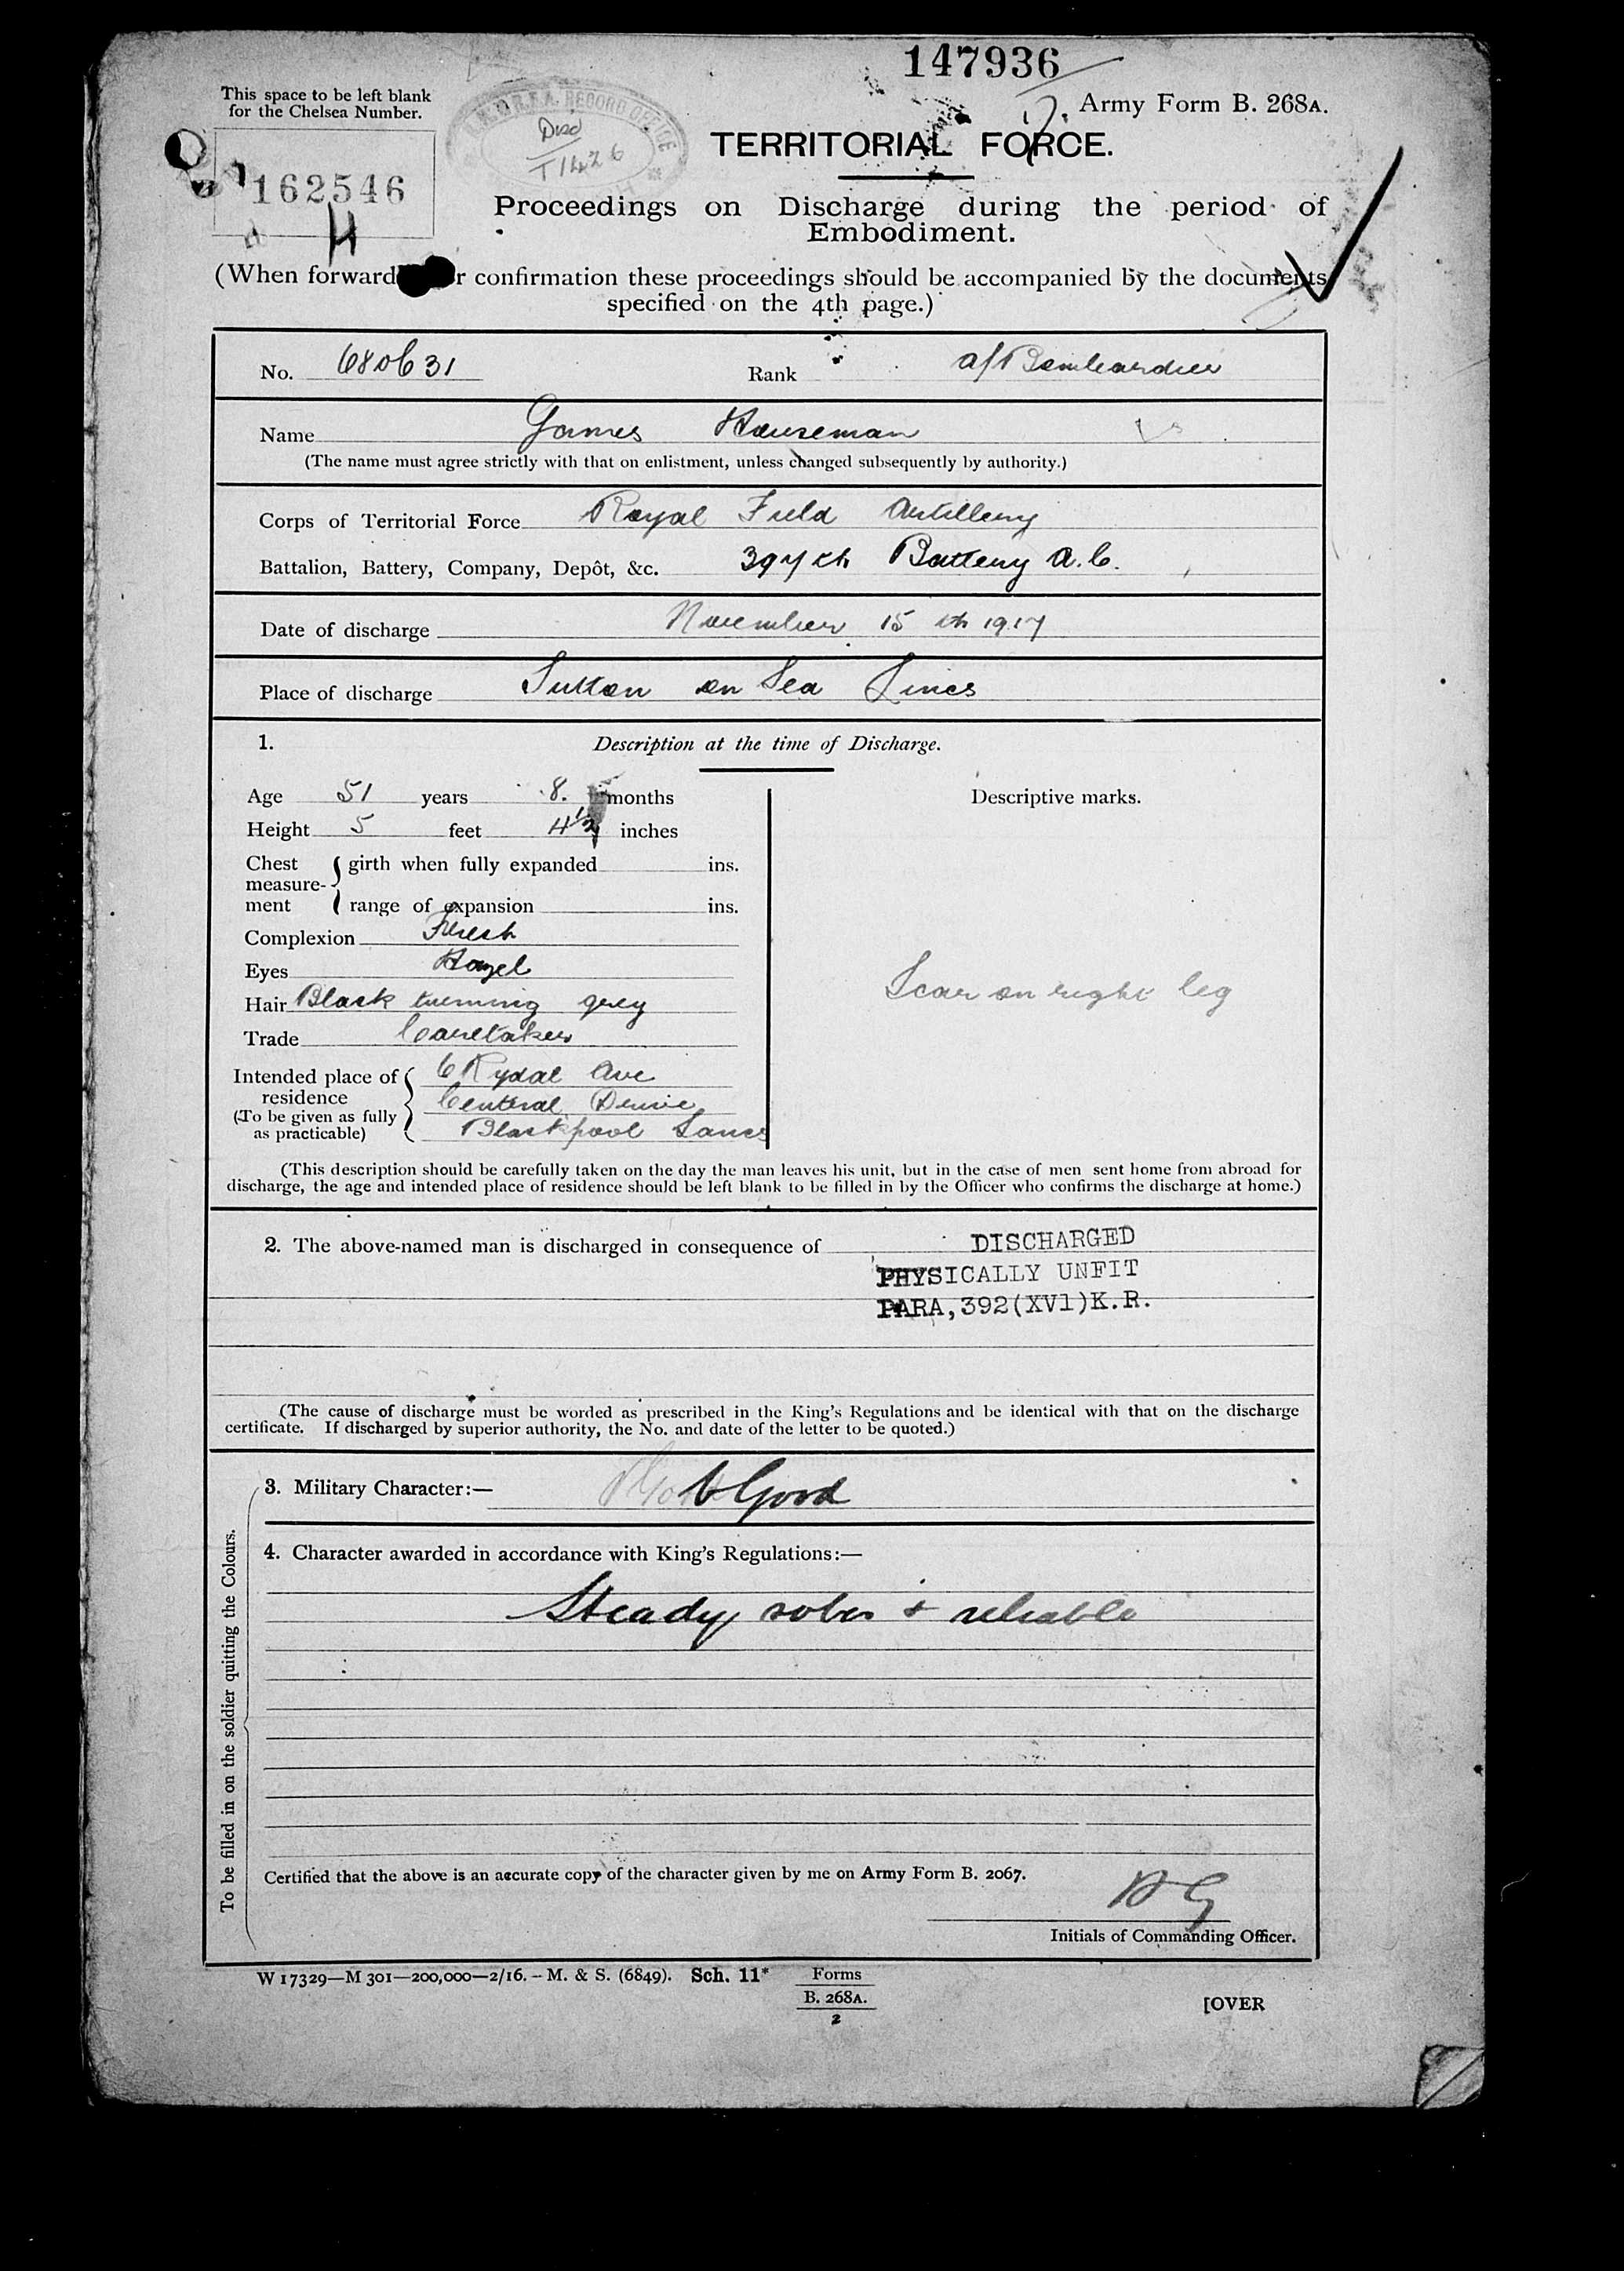 147936
This space to be left blank
for the Chelsea Number.
Army Form B. 268A.
R.H. & R.F.A. RECORD OFFICE
Disd
T1426
TERRITORIAL FORCE.
162546
H
Proceedings on Discharge during the period of
Embodiment.
(When forward r confirmation these proceedings should be accompanied by the documents
specified on the 4th page.)
No. 680631 Rank a/Bombardier
Name James Houseman
(The name must agree strictly with that on enlistment, unless changed subsequently by authority.)
Corps of Territorial Force Royal Field Artillery
Battalion, Battery, Company, Depôt, &c. 397th Battery A.C.
Date of discharge November 15th 1917
Place of discharge Sutton on Sea Lincs
1. Description at the time of Discharge.
Age 51 years 8. months
Height 5 feet 4½ inches
Chest measure-ment { girth when fully expanded ins.
range of expansion ins.
Complexion Fresh
Eyes Hazel
Hair Black turning grey
Trade Caretaker
Intended place of residence (To be given as fully as practicable) { 6 Rydal Ave
Central Drive
Blackpool Lancs
Descriptive marks.
Scar on right leg
(This description should be carefully taken on the day the man leaves his unit, but in the case of men sent home from abroad for
discharge, the age and intended place of residence should be left blank to be filled in by the Officer who confirms the discharge at home.)
2. The above-named man is discharged in consequence of DISCHARGED
PHYSICALLY UNFIT
PARA,392(XVI)K.R.
(The cause of discharge must be worded as prescribed in the King's Regulations and be identical with that on the discharge
certificate. If discharged by superior authority, the No. and date of the letter to be quoted.)
To be filled in on the soldier quitting the Colours.
3. Military Character:— V Good
4. Character awarded in accordance with King's Regulations:—
Steady sober & reliable
Certified that the above is an accurate copy of the character given by me on Army Form B. 2067.
Initials of Commanding Officer.
W 17329—M 301—200,000—2/16. – M. & S. (6849). Sch. 11* Forms
B. 268A.
2
[OVER